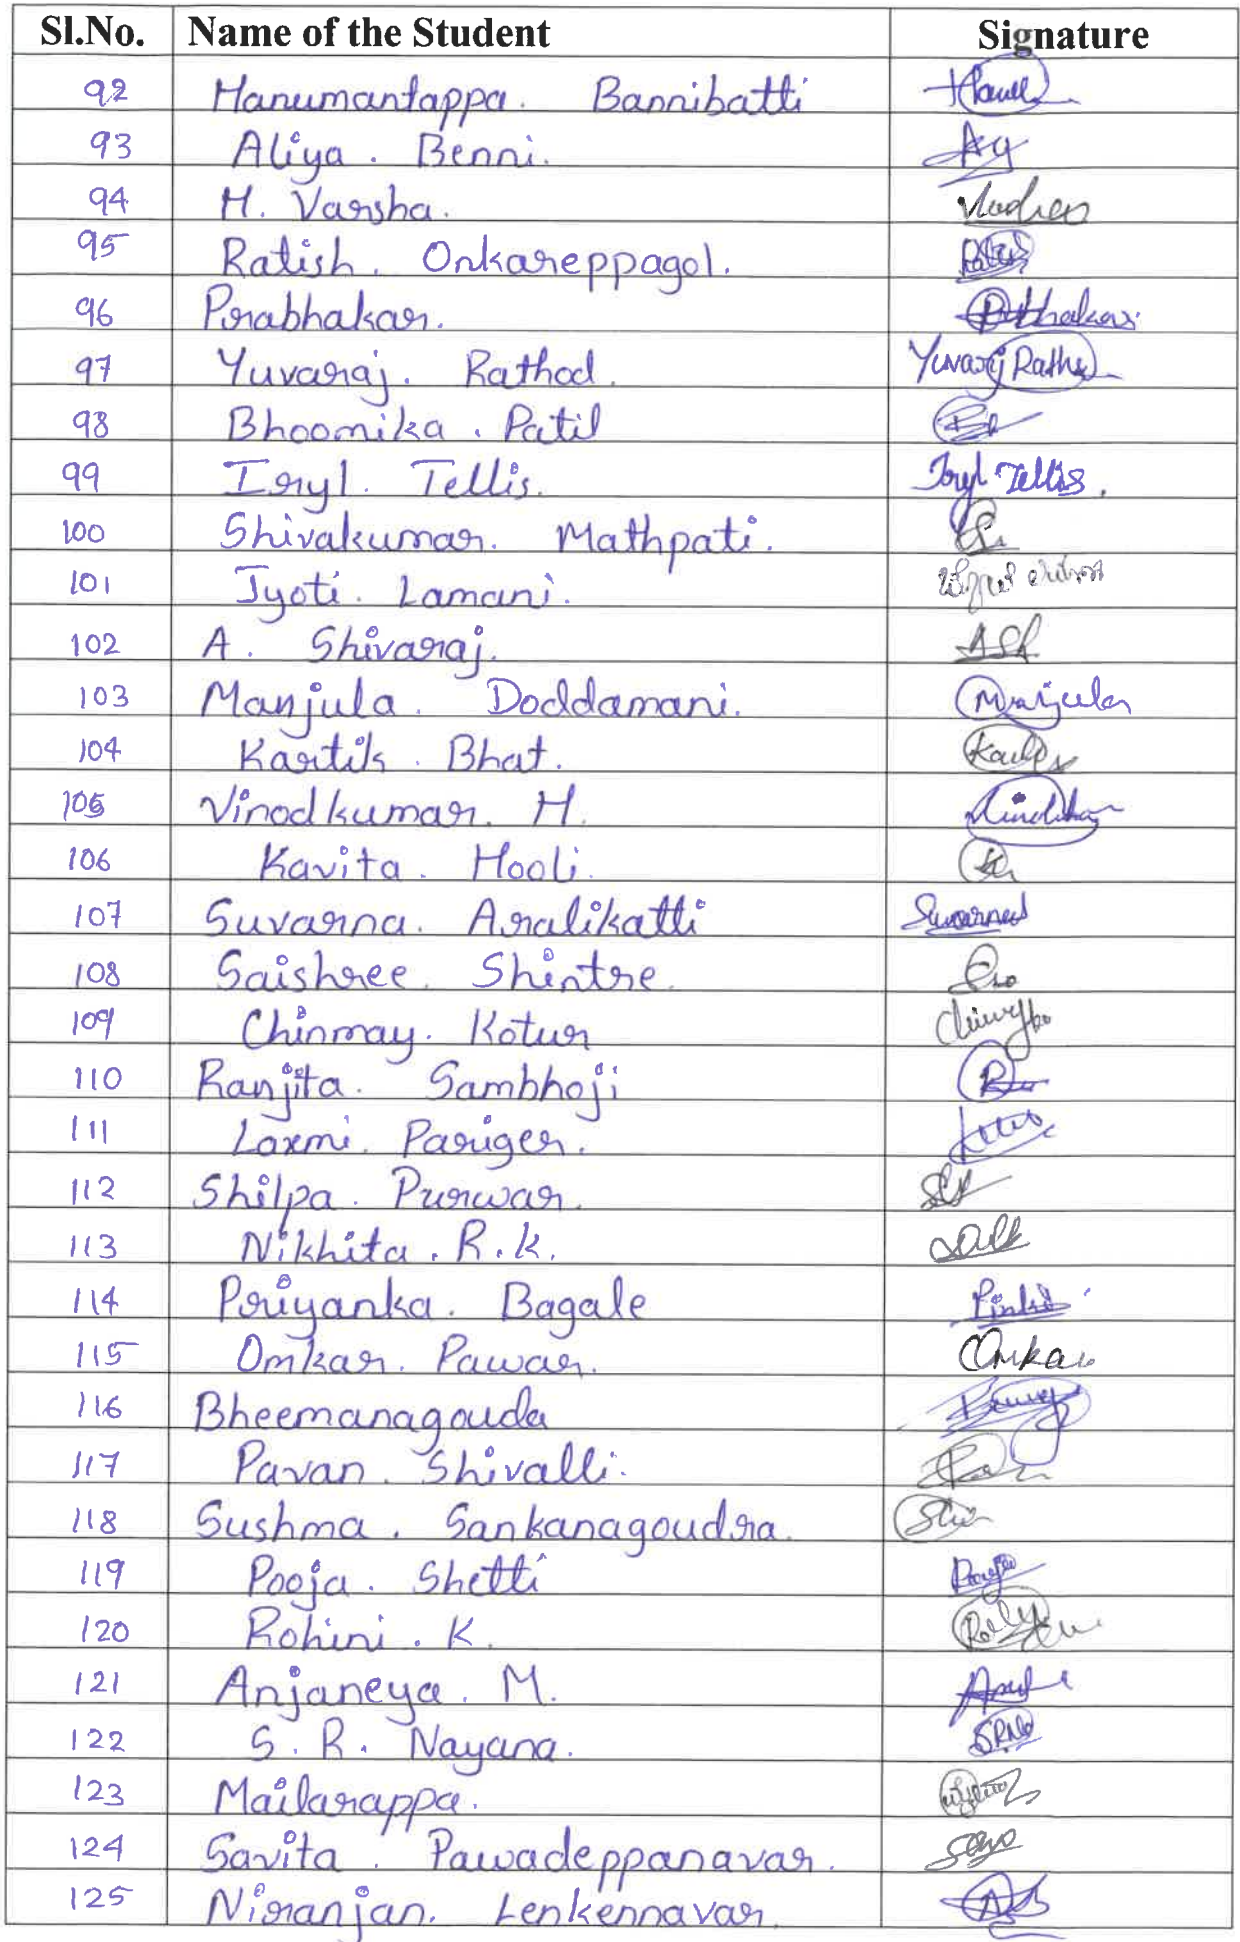 Sl.No. Name of the Student Signature
92 Hanumantappa. Bannibatti
93 Aliya. Benni.
94 H. Varsha.
95 Ratish. Onkareppagol.
96 Prabhakar. Prabhakar
97 Yuvaraj. Rathod. Yuvaraj Rathod
98 Bhoomika. Patil
99 Iryl. Tellis. Iryl Tellis.
100 Shivakumar. Mathpati.
101 Jyoti. Lamani.
102 A. Shivaraj.
103 Manjula. Doddamani. Manjula
104 Kartik. Bhat.
105 Vinodkumar. H.
106 Kavita. Hooli.
107 Suvarna. Aralikatti Suvarna
108 Saishree. Shintre.
109 Chinmay. Kotur
110 Ranjita. Sambhoji
111 Laxmi. Pariger.
112 Shilpa. Purwar.
113 Nikhita. R.K.
114 Priyanka. Bagale
115 Omkar. Pawar. Omkar
116 Bheemanagouda
117 Pavan. Shivalli.
118 Sushma. Sankanagoudra.
119 Pooja. Shetti Pooja
120 Rohini. K.
121 Anjaneya. M.
122 S. R. Nayana.
123 Mailarappa.
124 Savita. Pawadeppanavar.
125 Niranjan. Lenkennavar.